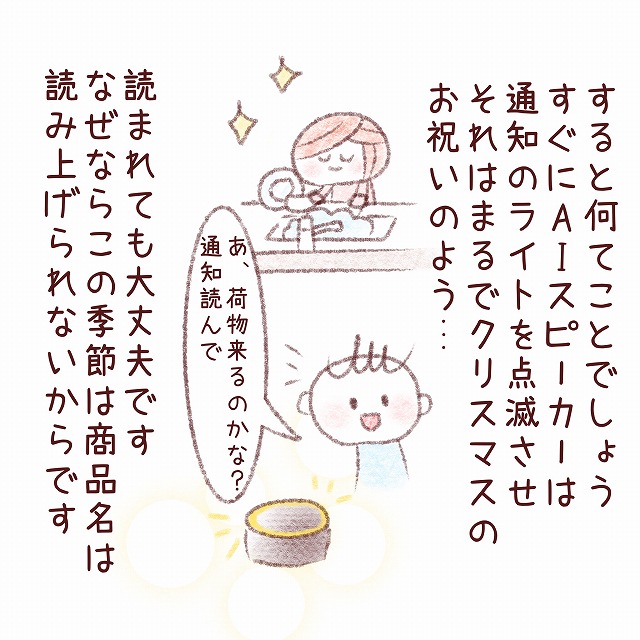 すると何てことでしょう
すぐにAIスピーカーは
通知のライトを点滅させ
それはまるでクリスマスの
お祝いのよう…
あ、荷物来るのかな?
通知読んで
読まれても大丈夫です
なぜならこの季節は商品名は
読み上げられないからです